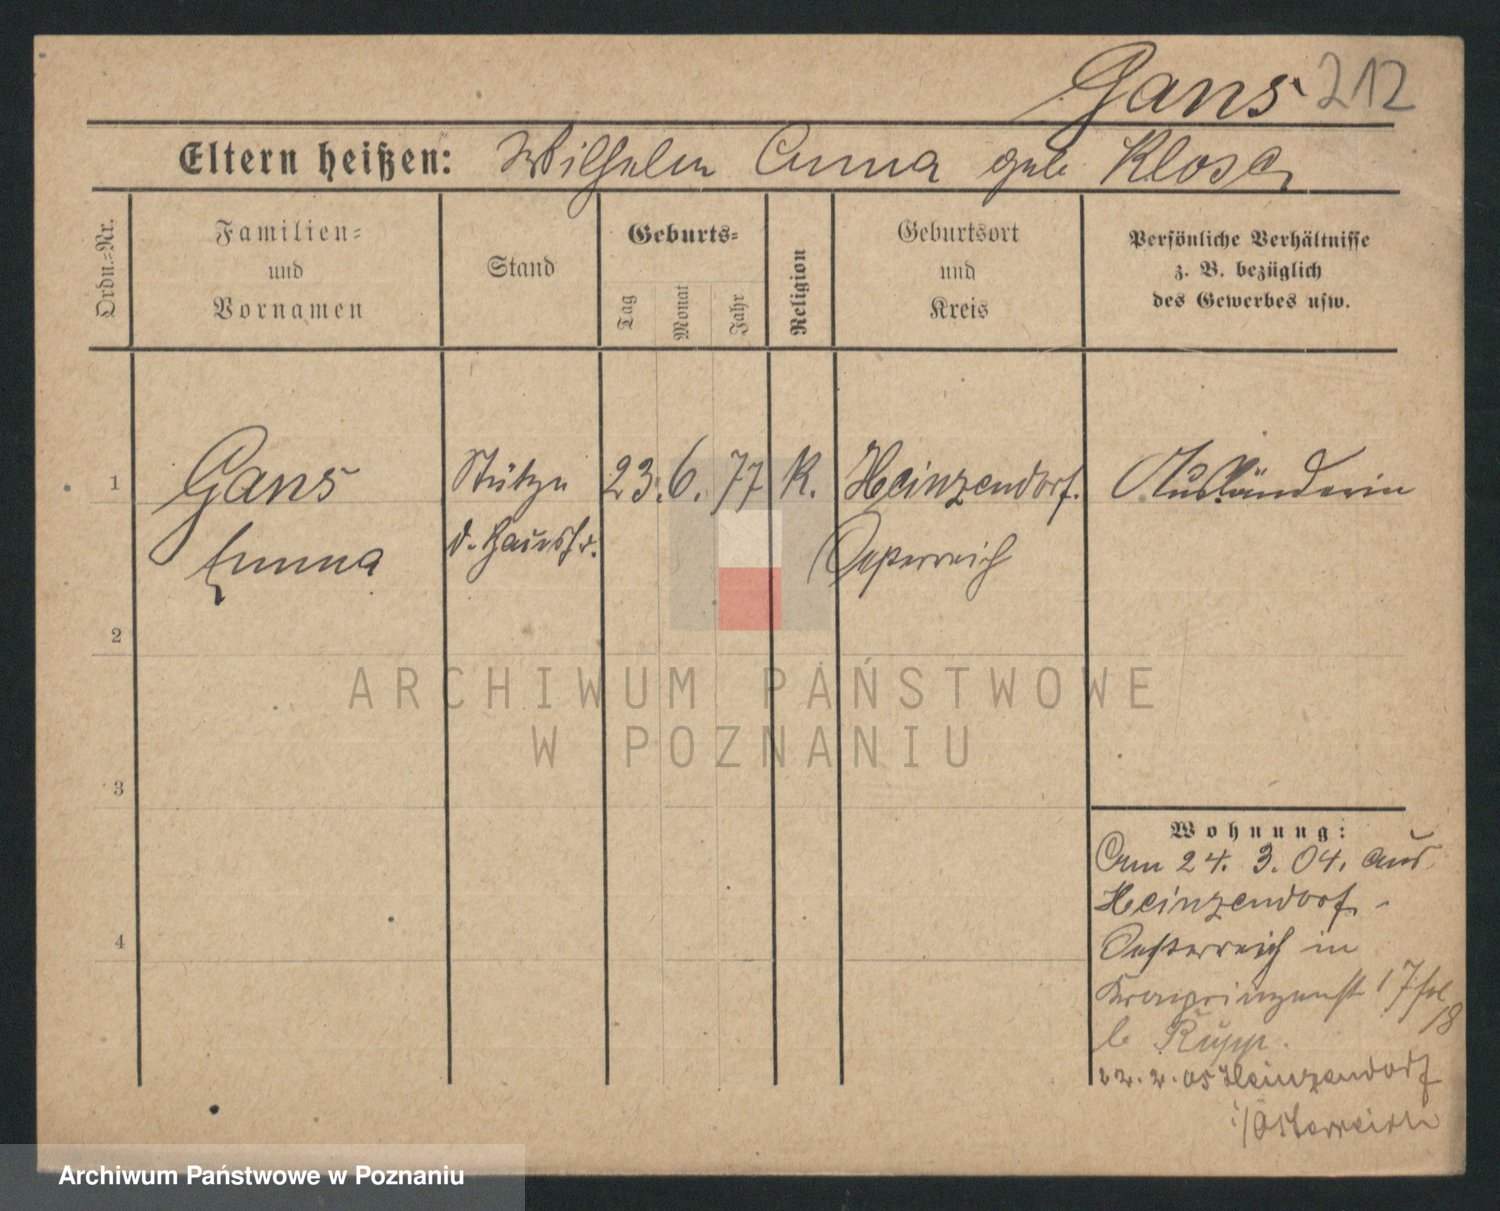 Gans 212
Eltern heißen: Wilhelm Anna geb Klosa
Ordn.-Nr.
Familien-
und
Vornamen
Stand
Geburts-
Tag
Monat
Jahr
Religion
Geburtsort
und
Kreis
Persönliche Verhältnisse
z. B. bezüglich
des Gewerbes usw.
1 Gans Stütze 23. 6. 77 K. Heinzendorf. Ausländerin
Emma d. Haush. Oesterreich
2
3
4
Wohnung:
Am 24. 3. 04. aus
Heinzendorf -
Oesterreich in
Kronprinzenst 17
18
b Rupp.
22. 2. 05 Heinzendorf
i/Österreich
ARCHIWUM PAŃSTWOWE
W POZNANIU
Archiwum Państwowe w Poznaniu